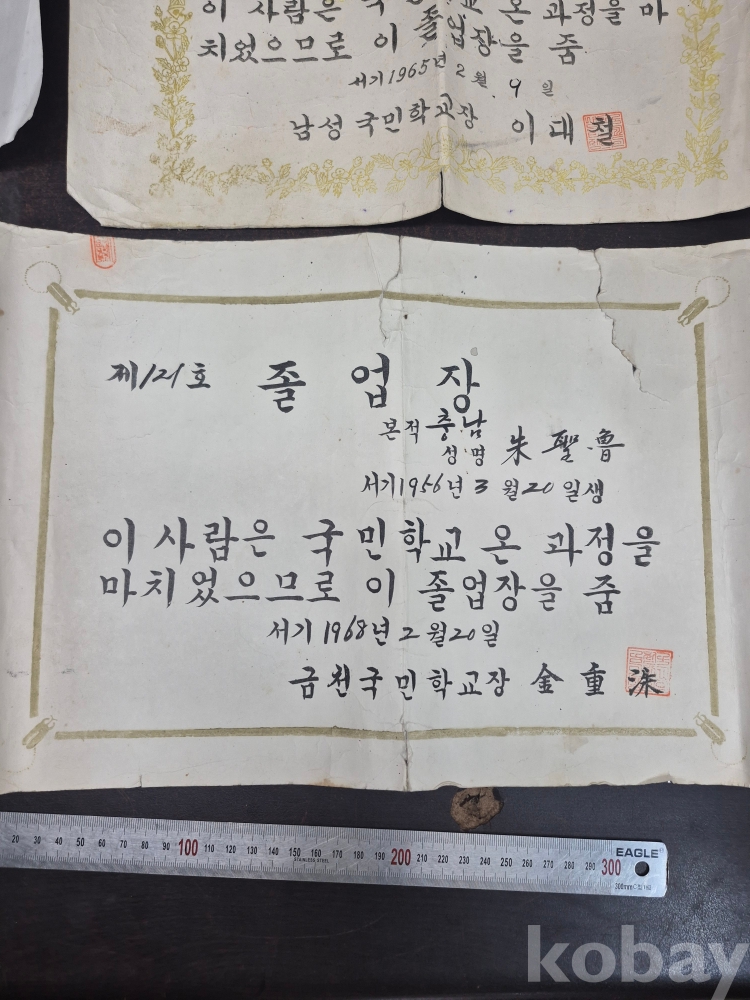 이 사람은 국민학교 온 과정을 마
치었으므로 이 졸업장을 줌
서기 1965년 2월 9일
남성국민학교장 이대철
제121호 졸업장
본적 충남
성명 朱聖魯
서기 1956년 3월 20일생
이 사람은 국민학교 온 과정을
마치었으므로 이 졸업장을 줌
서기 1968년 2월 20일
금천국민학교장 金重洙
20 30 40 50 60 70 80 90 100 110 120 130 140 150 160 170 180 190 200 210 220 230 240 250 260 270 280 290 300
STAINLESS STEEL
EAGLE
kobay